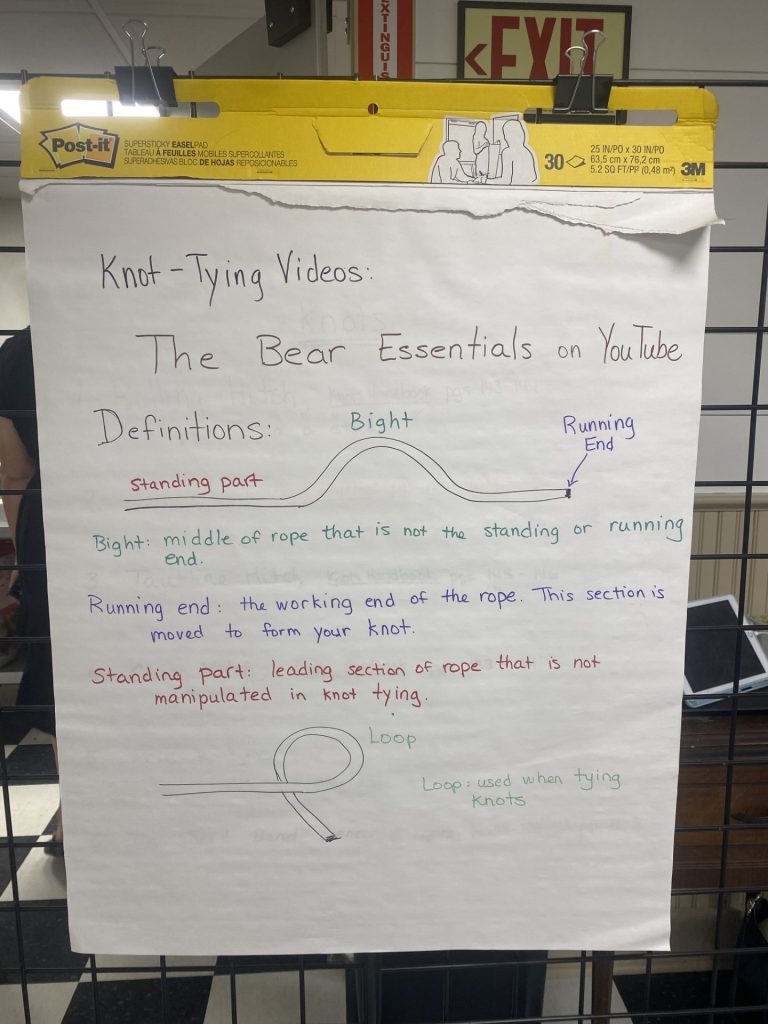 EXTINGUIS
<EXIT
Post-it
SUPERSTICKY EASELPAD
TABLEAU À FEUILLES MOBILES SUPERCOLLANTES
SUPERADHESIVAS BLOC DE HOJAS REPOSICIONABLES
30
25 IN/PO x 30 IN/PO
63,5 cm x 76,2 cm
5.2 SQ FT/PI² (0,48 m²)
3M
Knot-Tying Videos:
The Bear Essentials on YouTube
Definitions:
Bight
Running
End
Standing part
Bight: middle of rope that is not the standing or running
end.
Running end: the working end of the rope. This section is
moved to form your knot.
Standing part: leading section of rope that is not
manipulated in knot tying.
Loop
Loop: used when tying
knots